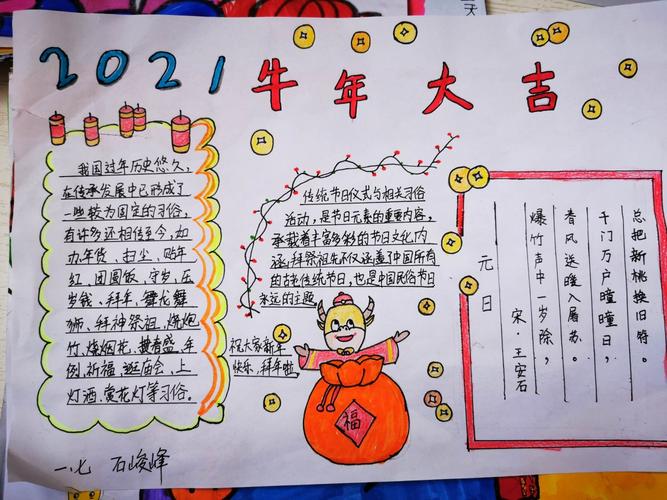 2021牛年大吉
我国过年历史悠久，
在传承发展中已形成了
一些较为固定的习俗，
有许多还相传至今，如
办年货、扫尘、贴年
红、团圆饭、守岁、压
岁钱、拜年、舞龙舞
狮、拜神祭祖、烧炮
竹、烧烟花、掛春盛、年
例、祈福、逛庙会、上
灯酒、赏花灯等习俗。
传统节日仪式与相关习俗
活动，是节日元素的重要内容，
承载着丰富多彩的节日文化内
涵，拜祭祖先不仅涵盖了中国所有
的古老传统节日，也是中国民俗节日
永远的主题。
祝大家新年
快乐，拜年啦
福
元日
宋·王安石
爆竹声中一岁除，
春风送暖入屠苏。
千门万户曈曈日，
总把新桃换旧符。
一、七 石峻峰
天